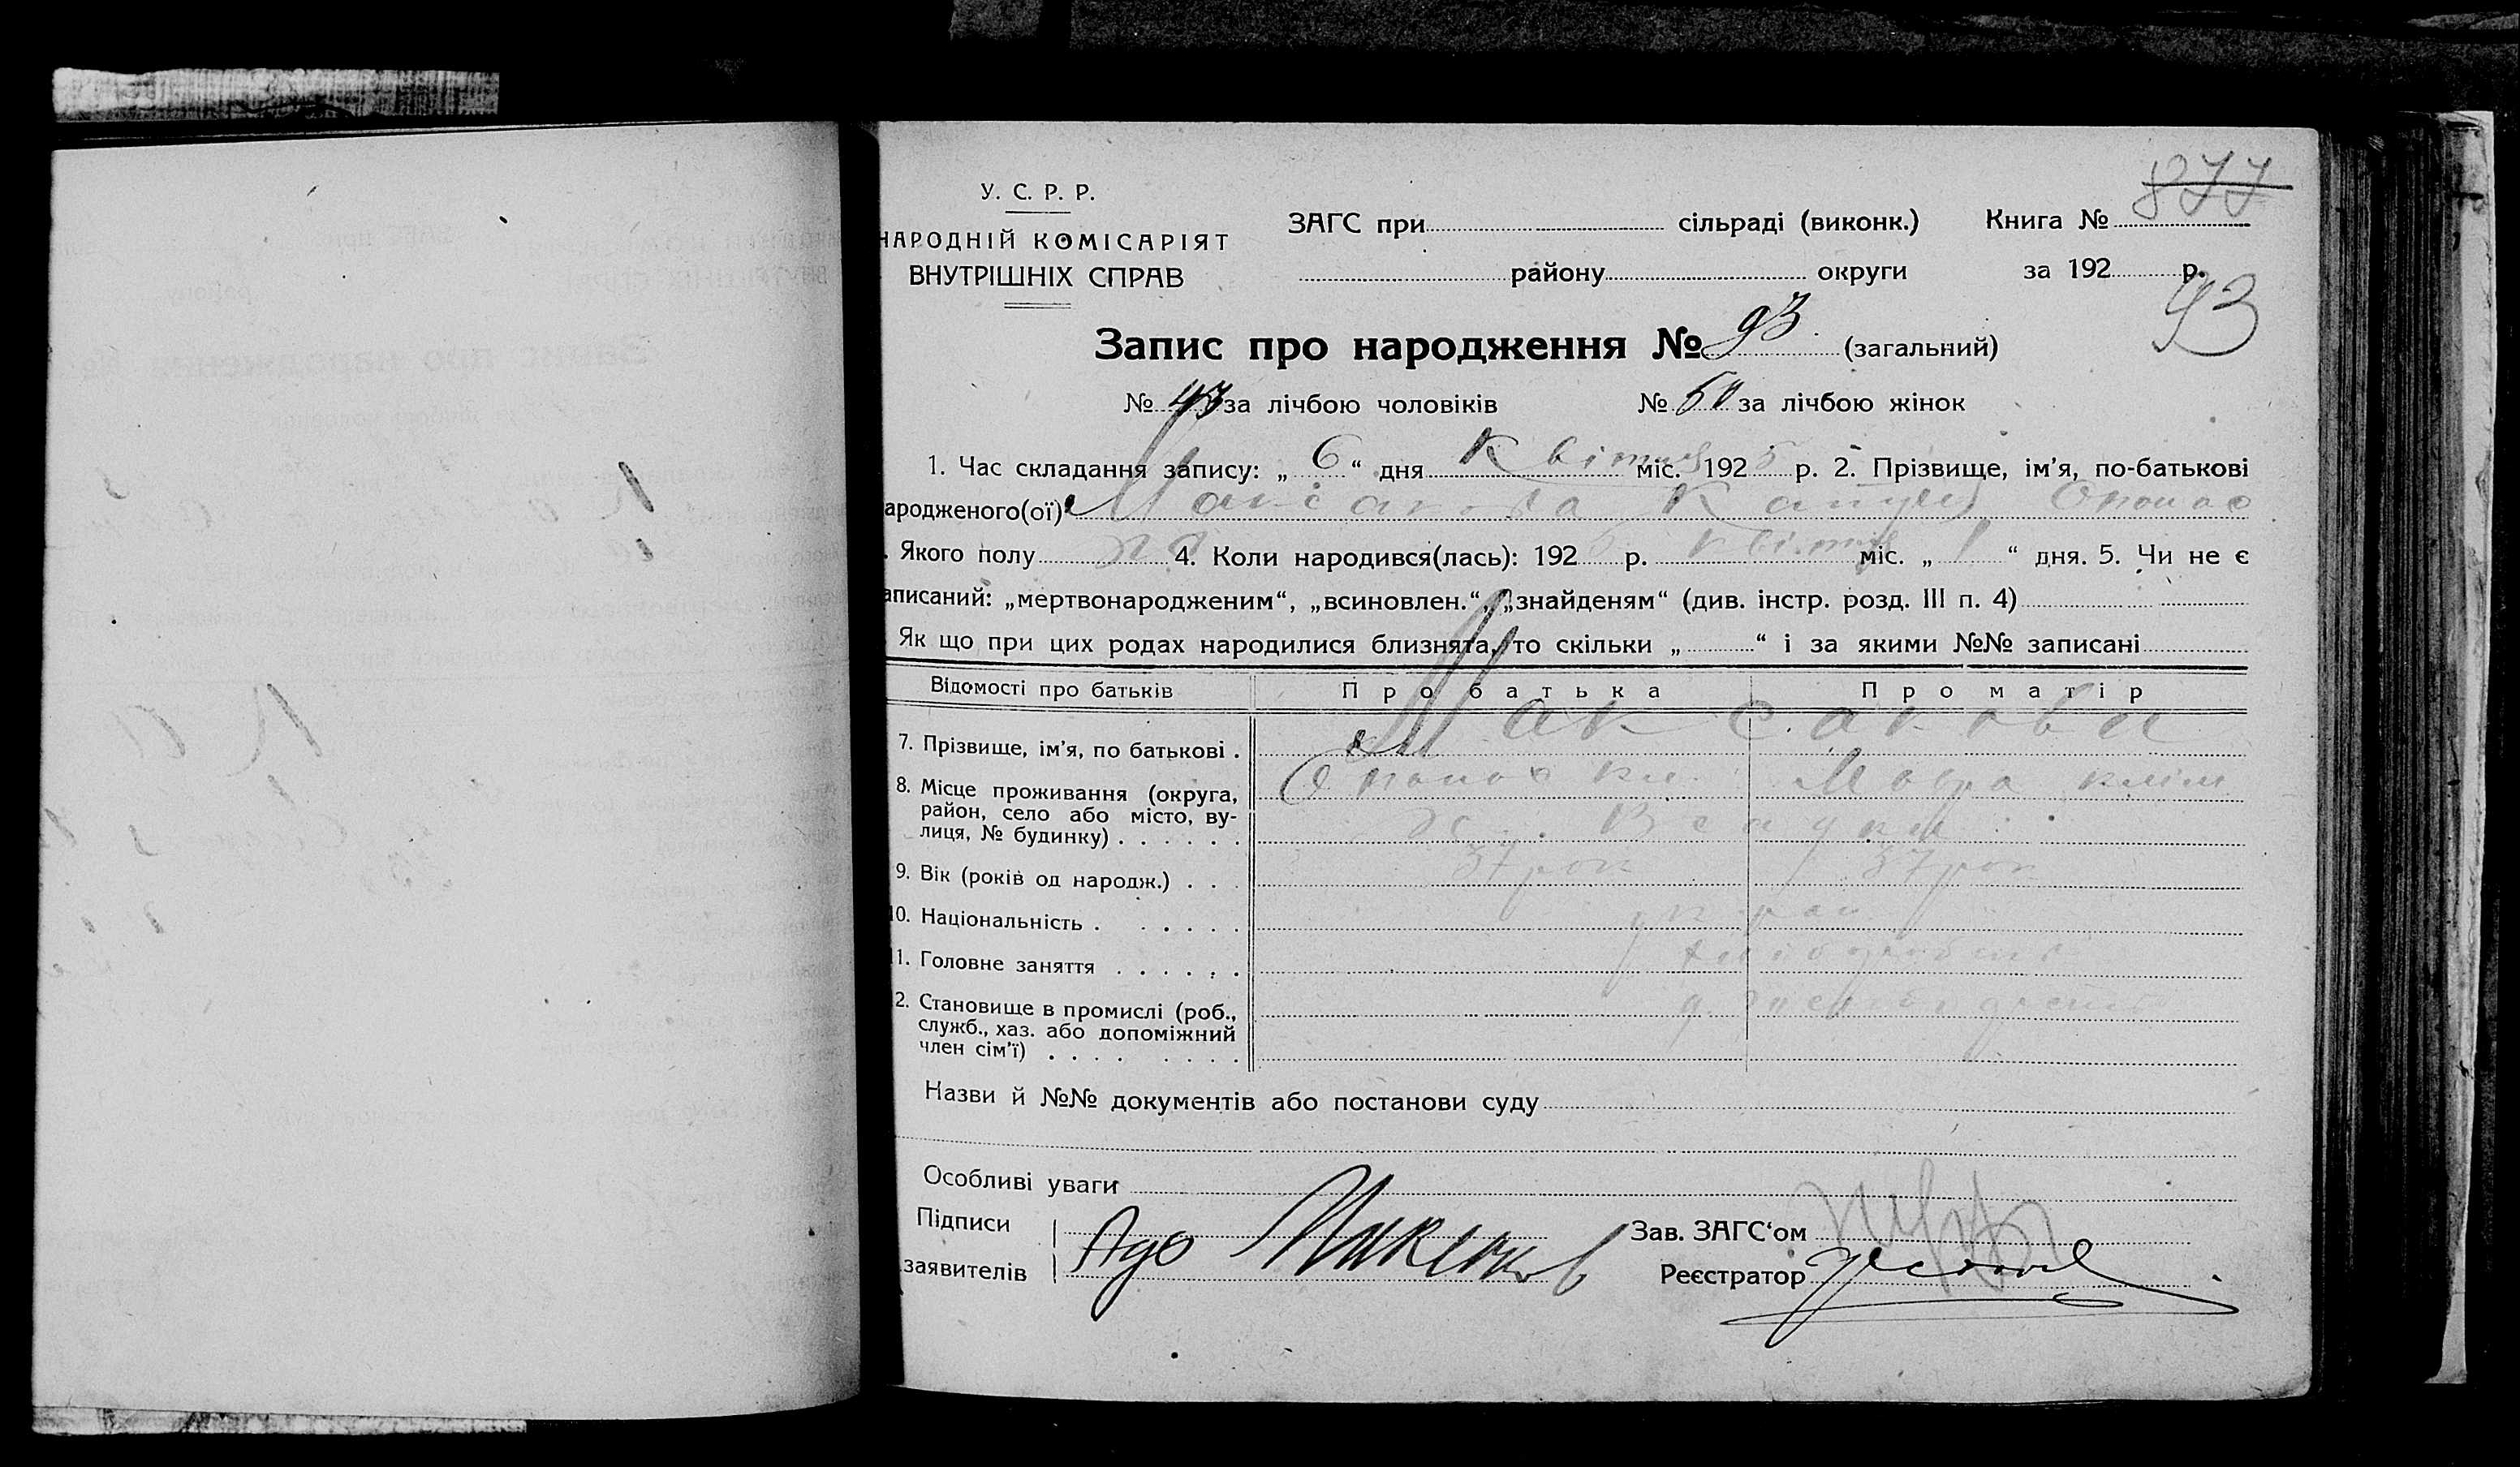 877
У. С. Р. Р.
НАРОДНІЙ КОМІСАРІЯТ
ВНУТРІШНІХ СПРАВ
ЗАГС при сільраді (виконк.) Книга №
району округи за 192 р.
93
Запис про народження № 93 (загальний)
№ 43 за лічбою чоловіків № 50 за лічбою жінок
1. Час складання запису: „ 6 “ дня Квітня міс. 1925 р. 2. Прізвище, ім’я, по-батькові
ародженого(ої) Максакова Опанас
. Якого полу 4. Коли народився(лась): 192 р. квітня міс. „ 1 “ дня. 5. Чи не є
аписаний: „мертвонародженим“, „всиновлен.“, „знайденям“ (див. інстр. розд. III п. 4)
Як що при цих родах народилися близнята, то скільки „ “ і за якими №№ записані
Відомості про батьків Про батька Про матір
7. Прізвище, ім’я, по батькові . Максакови
Опанас Мавра клим
8. Місце проживання (округа, район, село або місто, вулиця, № будинку) . . . . . .
9. Вік (років од народж.) . . . 37 рок 37 рок
10. Національність . . . . . . украи
11. Головне заняття . . . . . . хліборобств
2. Становище в промислі (роб., служб., хаз. або допоміжний член сім’ї) . . . . . . . .
Назви й №№ документів або постанови суду
Особливі уваги
Підписи
заявителів Максаков
Зав. ЗАГС‘ом
Реєстратор